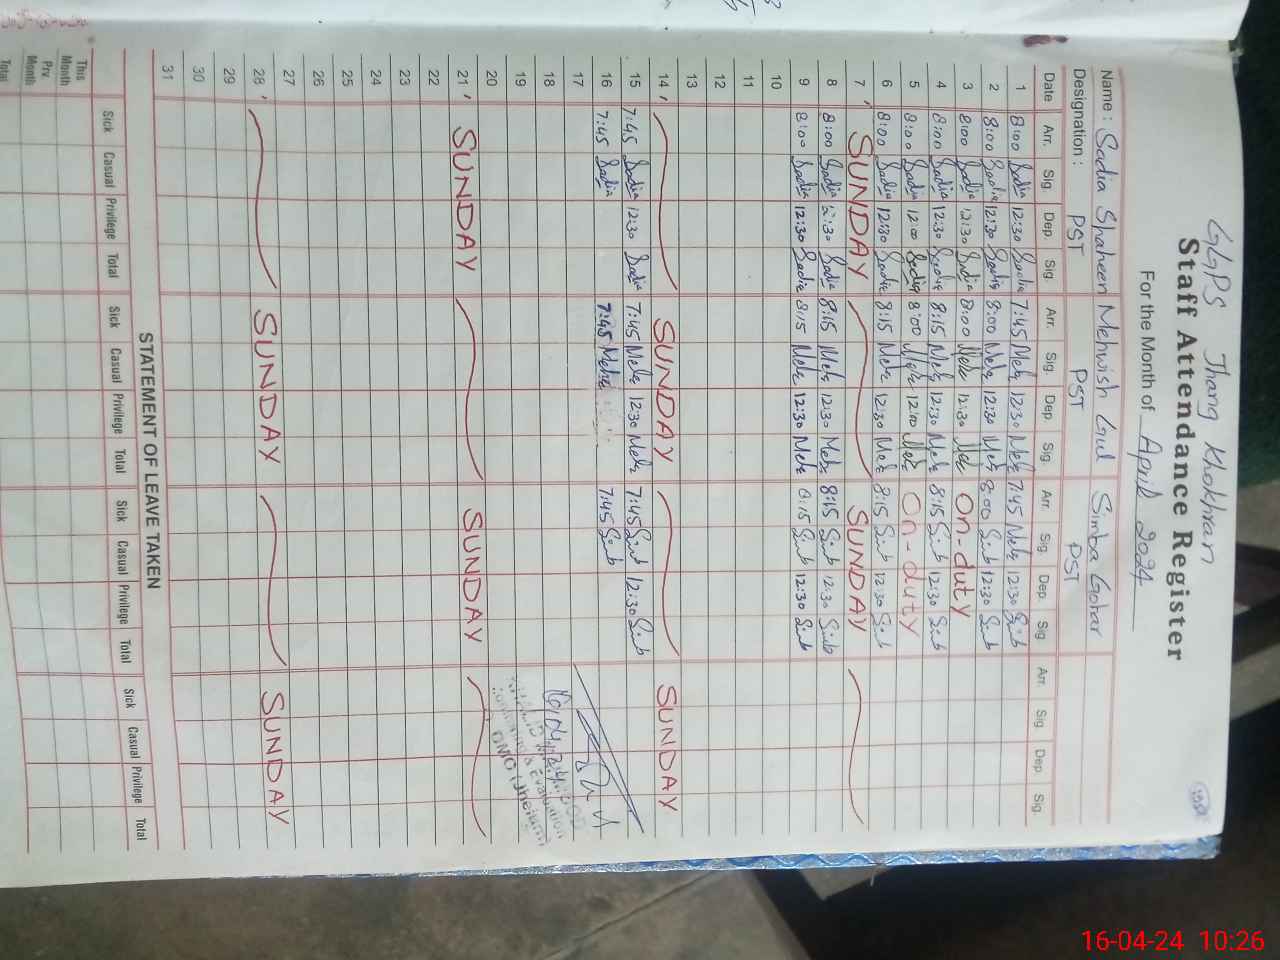 GGPS Thang Khokhran
Staff Attendance Register
For the Month of April 2024
Name : Sadia Shaheen Mehwish Gul Simba Gohar
Designation : PST PST PST
Date Arr. Sig. Dep. Sig. Arr. Sig. Dep. Sig. Arr. Sig. Dep. Sig. Arr. Sig. Dep. Sig.
1 8:00 Sadia 12:30 Sadia 7:45 Meh 12:30 Meh 7:45 Meh 12:30 Simb
2 8:00 Sadia 12:30 Sadia 8:00 Meh 12:30 Meh 8:00 Simb 12:30 Simb
3 8:00 Sadia 12:30 Sadia 8:00 Meh 12:30 Meh On-duty
4 8:00 Sadia 12:30 Sadia 8:15 Meh 12:30 Meh 8:15 Simb 12:30 Simb
5 8:00 Sadia 12:00 Sadia 8:00 Meh 12:00 Meh On-duty
6 8:00 Sadia 12:30 Sadia 8:15 Meh 12:30 Meh 8:15 Simb 12:30 Simb
7, SUNDAY SUNDAY
8 8:00 Sadia 12:30 Sadia 8:15 Meh 12:30 Meh 8:15 Simb 12:30 Simb
9 8:00 Sadia 12:30 Sadia 8:15 Meh 12:30 Meh 8:15 Simb 12:30 Simb
10
11
12
13
14, SUNDAY SUNDAY
15 7:45 Sadia 12:30 Sadia 7:45 Meh 12:30 Meh 7:45 Simb 12:30 Simb
16 7:45 Sadia 7:45 Meh 7:45 Simb
17
18
19
20
21, SUNDAY SUNDAY
22
23
24
25
26
27
28, SUNDAY SUNDAY
29
30
31
STATEMENT OF LEAVE TAKEN
Sick Casual Privilege Total Sick Casual Privilege Total Sick Casual Privilege Total Sick Casual Privilege Total
This Month
Prv. Month
Total
16-04-24 10:26